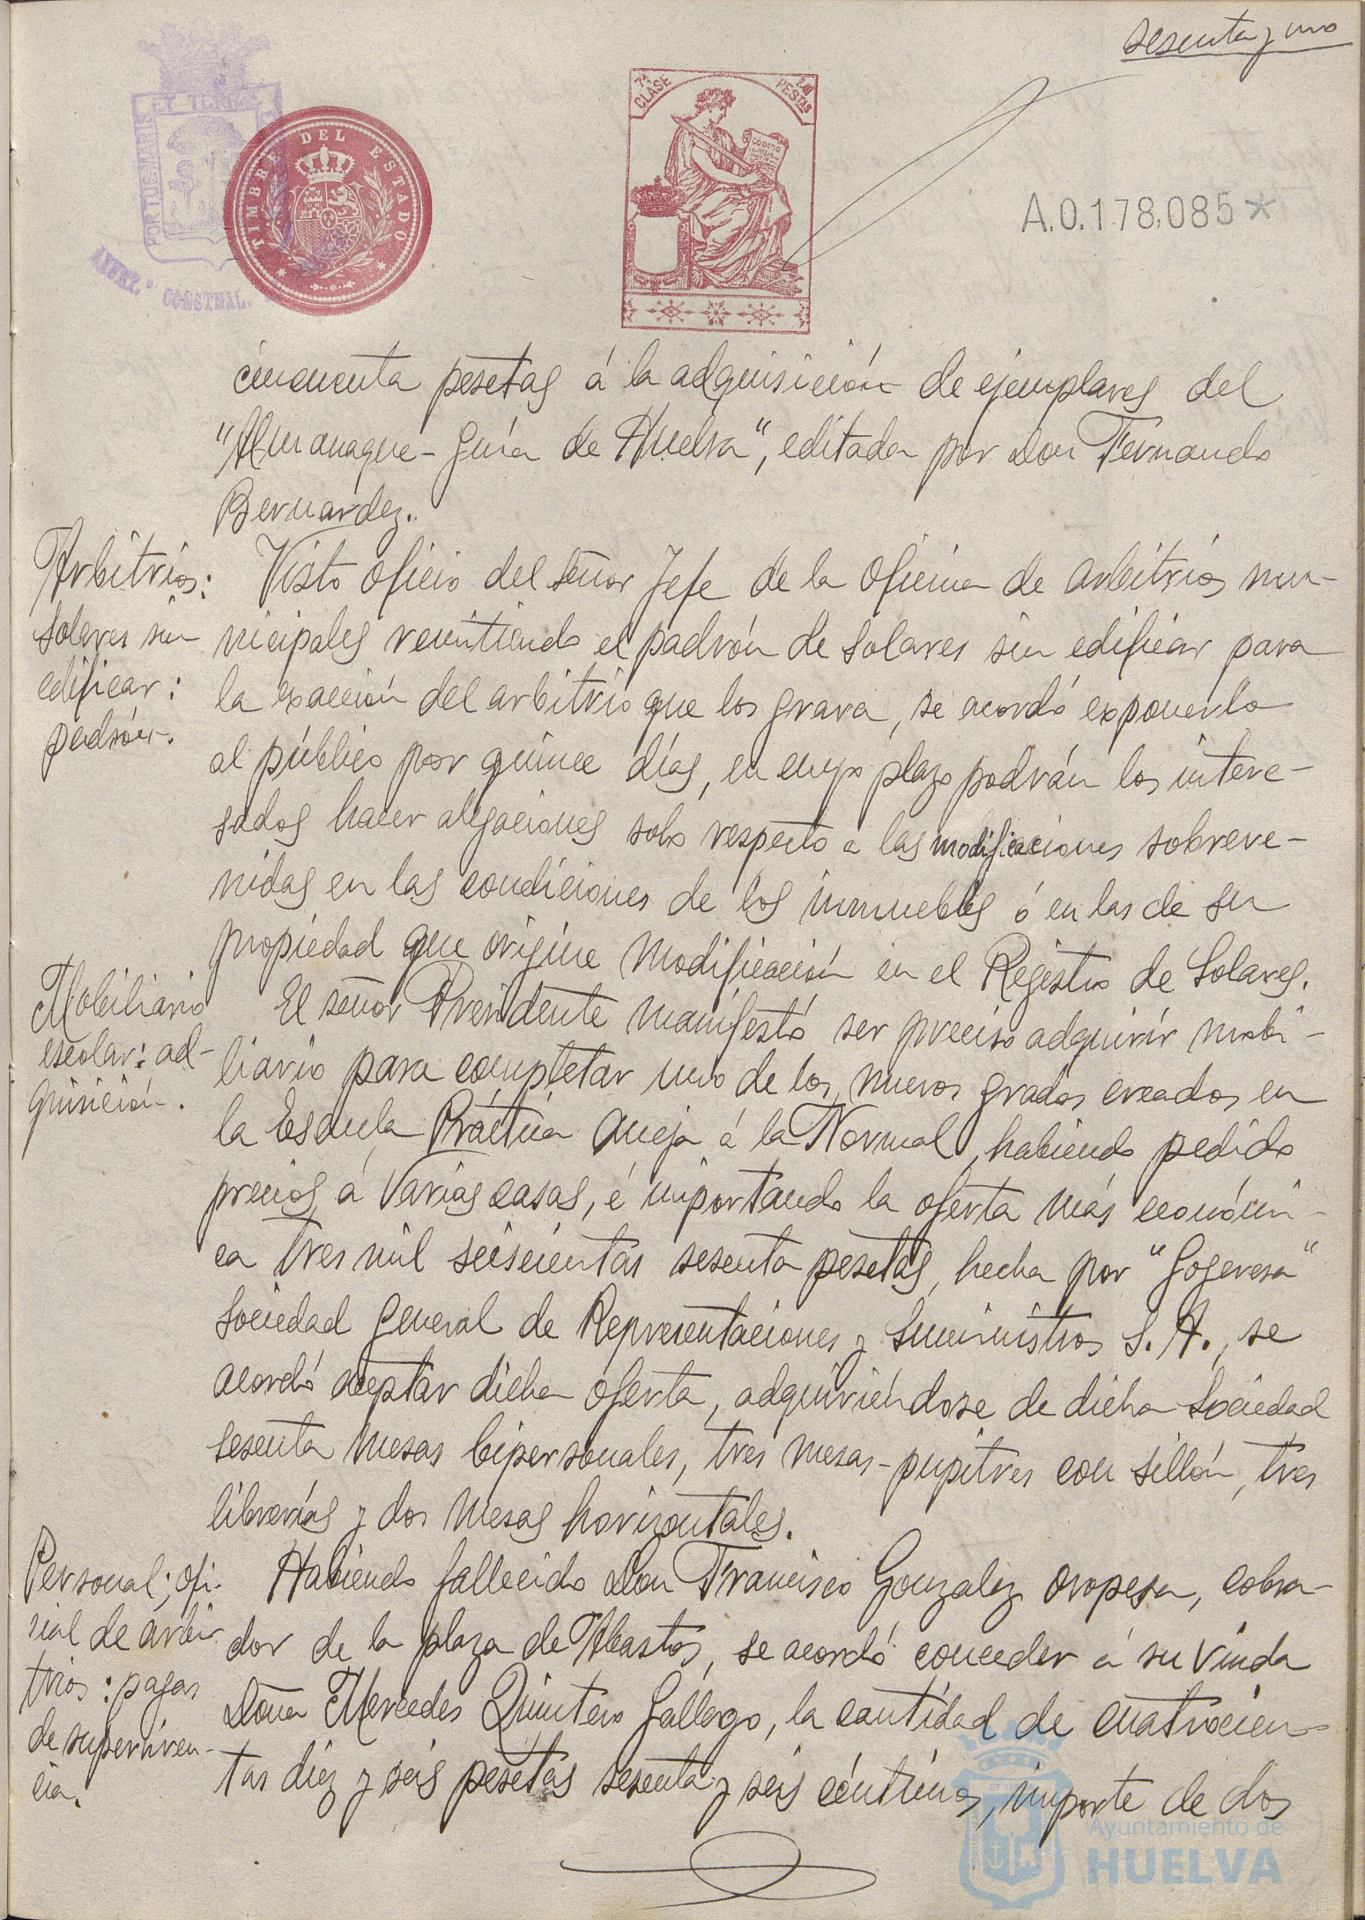 sesenta y uno
PORTUS MARIS ET TERRAE
AYUNT.º CONSTNAL.
TIMBRE DEL ESTADO
7ª CLASE
PESTAS
CODIGO
A.0.178,085*
cincuenta pesetas á la adquisición de ejemplares del
"Almanaque-Guía de Huelva", editada por Don Fernando
Bernardez.
Arbitrios:
solares sin
edificar:
padrón.
Visto oficio del señor Jefe de la Oficina de arbitrios mu-
nicipales remitiendo el padrón de solares sin edificar para
la exacción del arbitrio que los grava, se acordó exponerlo
al público por quince días, en cuyo plazo podrán los intere-
sados hacer alegaciones solo respecto a las modificaciones sobreve-
nidas en las condiciones de los inmuebles ó en las de su
propiedad que origine modificación en el Registro de Solares.
Mobiliario
escolar: ad-
quisición.
El señor Presidente manifestó ser preciso adquirir mobi-
liario para completar uno de los nuevos grados creados en
la Escuela Práctica Aneja á la Normal, habiendo pedido
precios á varias casas, é importando la oferta más económi-
ca tres mil seiscientas sesenta pesetas, hecha por "Sogeresa"
Sociedad General de Representaciones y Suministros S. A., se
acordó aceptar dicha oferta, adquiriéndose de dicha Sociedad
sesenta mesas bipersonales, tres mesas-pupitres con sillón, tres
librerías y dos mesas horizontales.
Personal; ofi-
cial de arbi-
trios: pagas
de superviven-
cia.
Habiendo fallecido Don Francisco Gonzalez Oropesa, cobra-
dor de la plaza de Abastos, se acordó conceder á su viuda
Doña Mercedes Quintero Gallego, la cantidad de cuatrocien-
tas diez y seis pesetas sesenta y seis céntimos, importe de dos
Ayuntamiento de
HUELVA